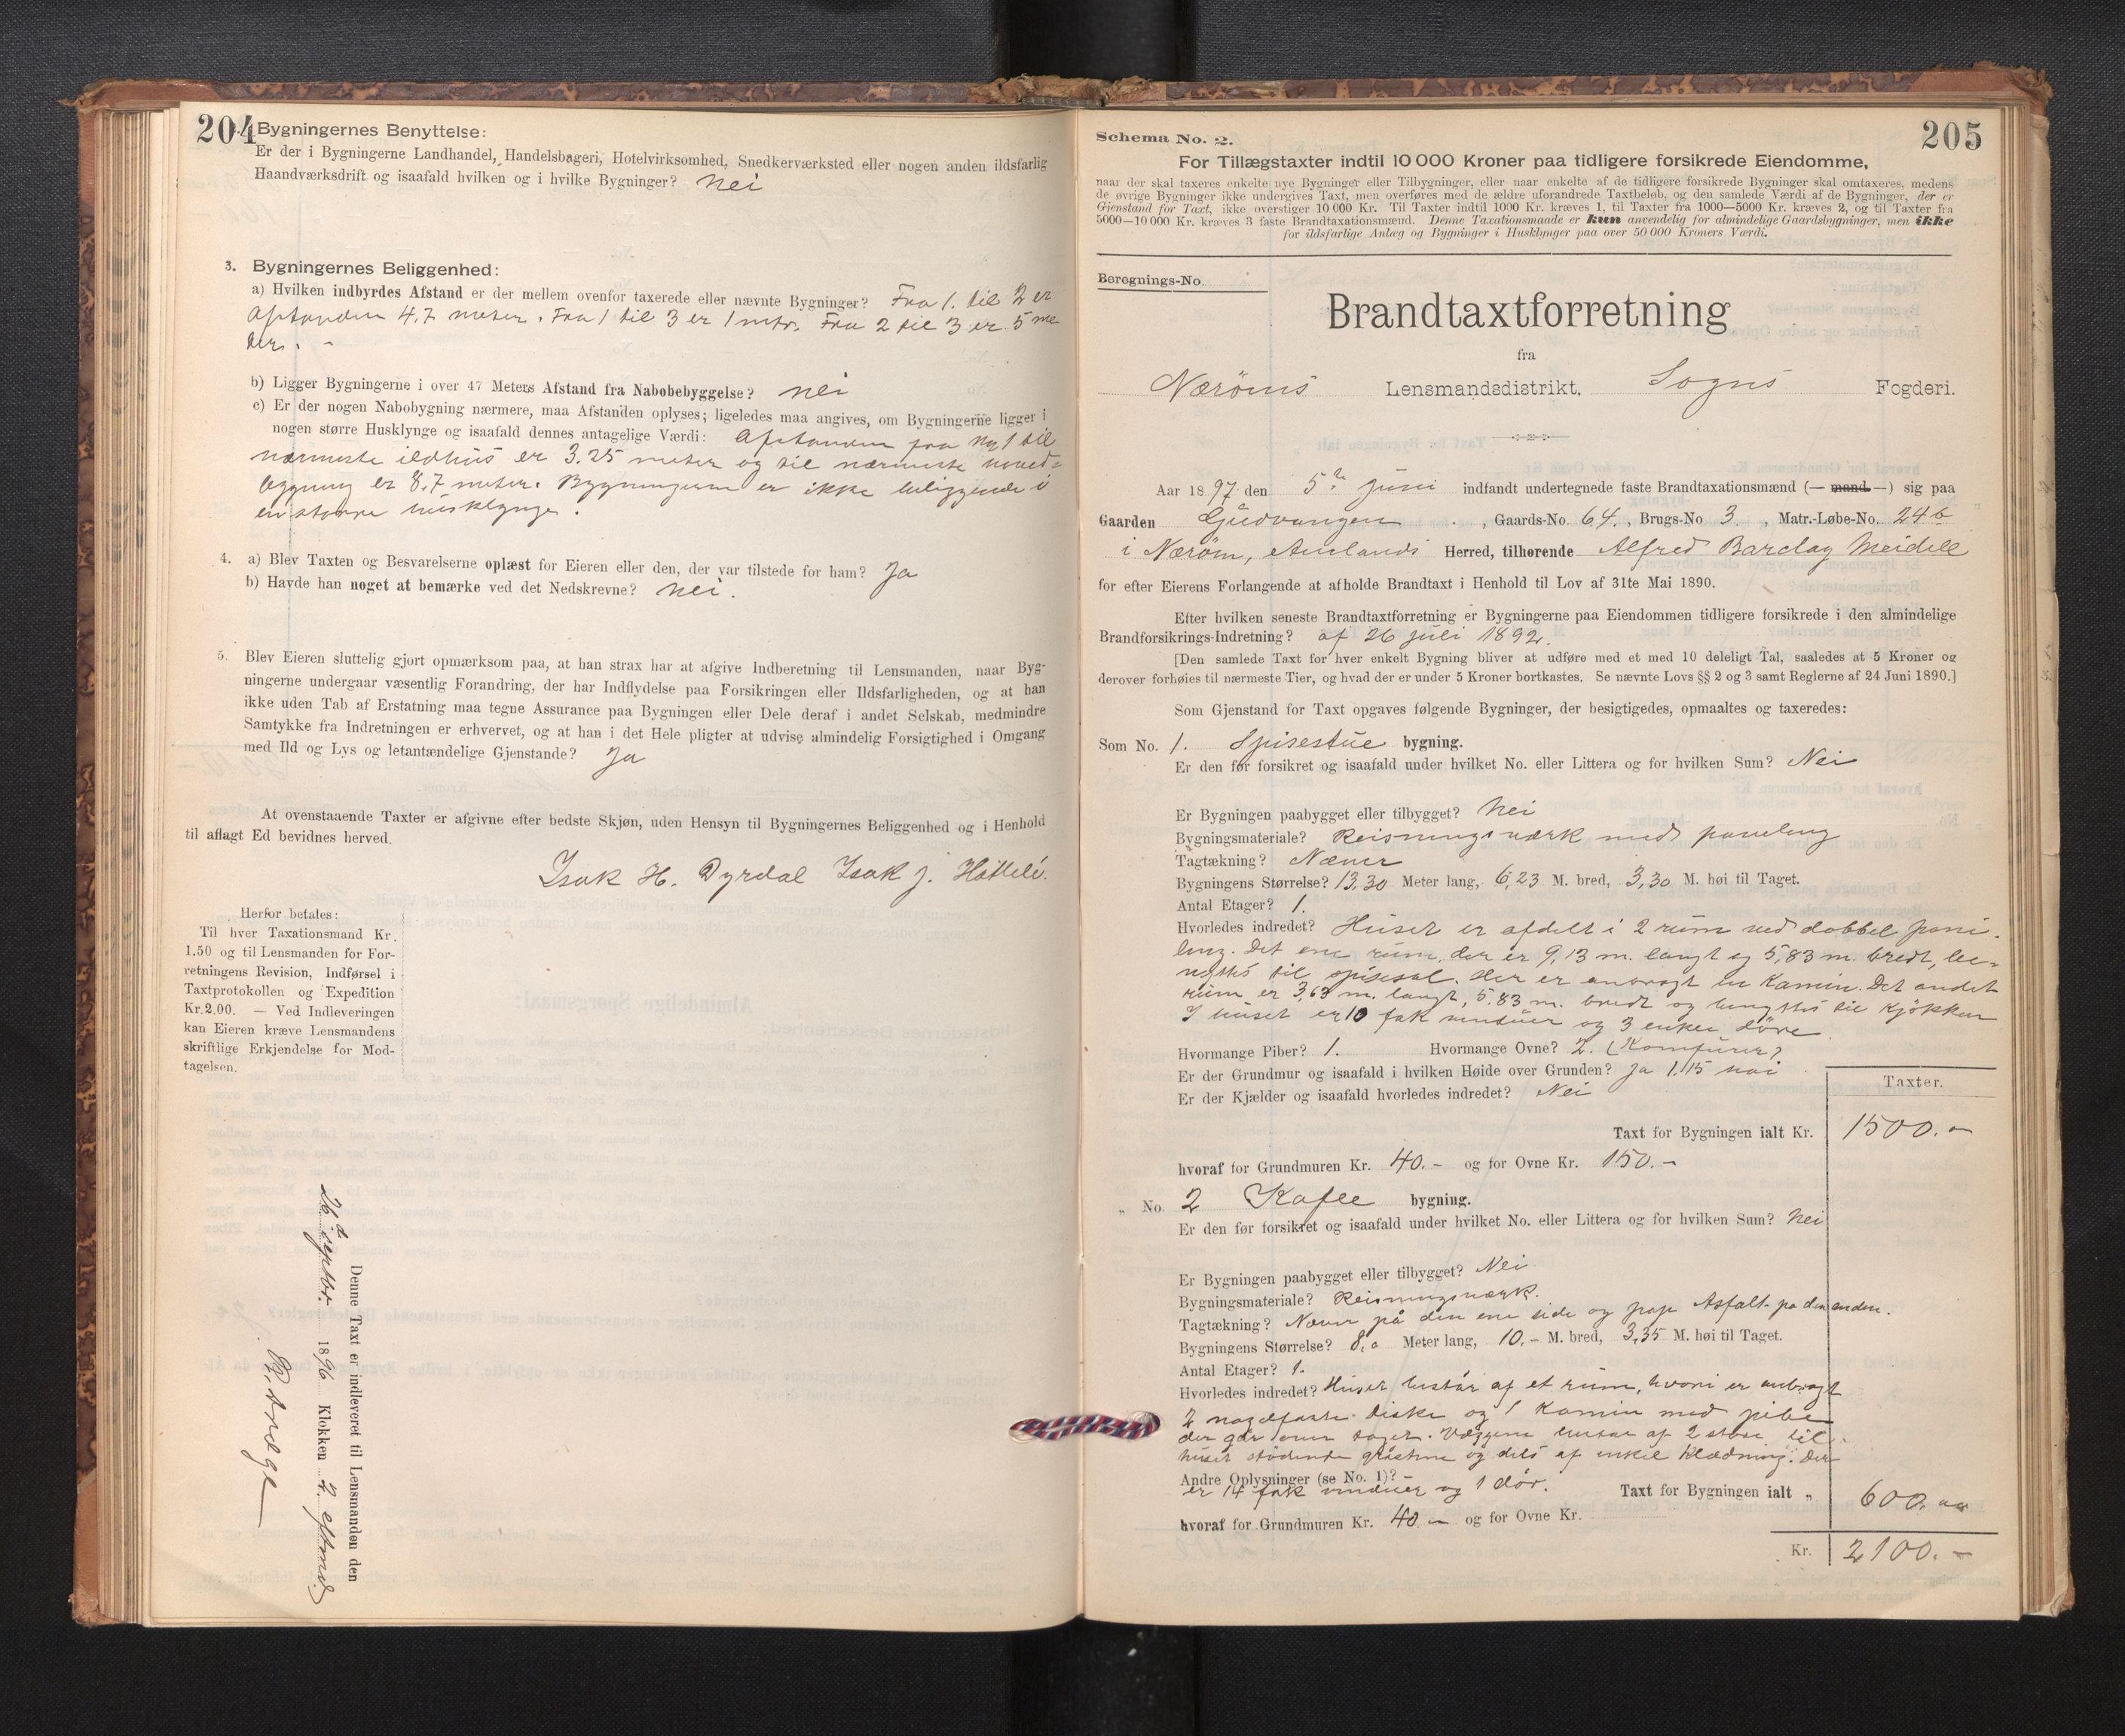 204
Bygningernes Benyttelse:
Er der i Bygningerne Landhandel, Handelsbageri, Hotelvirksomhed, Snedkerværksted eller nogen anden ildsfarlig
Haandværksdrift og isaafald hvilken og i hvilke Bygninger? Nei
3. Bygningernes Beliggenhed:
a) Hvilken indbyrdes Afstand er der mellem ovenfor taxerede eller nævnte Bygninger? Fra 1. til 2 er
afstanden 4,7 meter. Fra 1 til 3 er 1 metr. Fra 2 til 3 er 5 me
ter. -
b) Ligger Bygningerne i over 47 Meters Afstand fra Nabobebyggelse? nei
c) Er der nogen Nabobygning nærmere, maa Afstanden oplyses; ligeledes maa angives, om Bygningerne ligger i
nogen større Husklynge og isaafald dennes antagelige Værdi: Afstanden fra No 1 til
nærmeste ildhus er 3.25 meter og til nærmeste hoved=
bygning er 8,7 meter. Bygningerne er ikke beliggende i
en større husklynge.
4. a) Blev Taxten og Besvarelserne oplæst for Eieren eller den, der var tilstede for ham? Ja
b) Havde han noget at bemærke ved det Nedskrevne? nei.
5. Blev Eieren sluttelig gjort opmærksom paa, at han strax har at afgive Indberetning til Lensmanden, naar Byg-
ningerne undergaar væsentlig Forandring, der har Indflydelse paa Forsikringen eller Ildsfarligheden, og at han
ikke uden Tab af Erstatning maa tegne Assurance paa Bygningen eller Dele deraf i andet Selskab, medmindre
Samtykke fra Indretningen er erhvervet, og at han i det Hele pligter at udvise almindelig Forsigtighed i Omgang
med Ild og Lys og letantændelige Gjenstande? Ja
At ovenstaaende Taxter er afgivne efter bedste Skjøn, uden Hensyn til Bygningernes Beliggenhed og i Henhold
til aflagt Ed bevidnes herved.
Isak H. Dyrdal Isak J. Hølleli.
Herfor betales:
Til hver Taxationsmand Kr.
1.50 og til Lensmanden for For-
retningens Revision, Indførsel i
Taxtprotokollen og Expedition
Kr. 2.00. — Ved Indleveringen
kan Eieren kræve Lensmandens
skriftlige Erkjendelse for Mod-
tagelsen.
Denne Taxt er indleveret til Lensmanden den
26d septbr. 1896 Klokken 2 eftmd.
205
Schema No. 2.
For Tillægstaxter indtil 10 000 Kroner paa tidligere forsikrede Eiendomme,
naar der skal taxeres enkelte nye Bygninger eller Tilbygninger, eller naar enkelte af de tidligere forsikrede Bygninger skal omtaxeres, medens
de øvrige Bygninger ikke undergives Taxt, men overføres med de ældre uforandrede Taxtbeløb, og den samlede Værdi af de Bygninger, der er
Gjenstand for Taxt, ikke overstiger 10 000 Kr. Til Taxter indtil 1000 Kr. kræves 1, til Taxter fra 1000—5000 Kr. kræves 2, og til Taxter fra
5000—10 000 Kr. kræves 3 faste Brandtaxationsmænd. Denne Taxationsmaade er kun anvendelig for almindelige Gaardsbygninger, men ikke
for ildsfarlige Anlæg og Bygninger i Husklynger paa over 50 000 Kroners Værdi.
Beregnings-No.
Brandtaxtforretning
fra
Nærøens Lensmandsdistrikt, Sogns Fogderi.
Aar 1897 den 5te Juni indfandt undertegnede faste Brandtaxationsmænd (— mand —) sig paa
Gaarden Gudvangen, Gaards-No. 64., Brugs-No 3, Matr.-Løbe-No. 24b
i Nærøen, Aurlands Herred, tilhørende Alfred Barclay Meidell
for efter Eierens Forlangende at afholde Brandtaxt i Henhold til Lov af 31te Mai 1890.
Efter hvilken seneste Brandtaxtforretning er Bygningerne paa Eiendommen tidligere forsikrede i den almindelige
Brandforsikrings-Indretning? af 26 Juli 1892.
[Den samlede Taxt for hver enkelt Bygning bliver at udføre med et med 10 deleligt Tal, saaledes at 5 Kroner og
derover forhøies til nærmeste Tier, og hvad der er under 5 Kroner bortkastes. Se nævnte Lovs §§ 2 og 3 samt Reglerne af 24 Juni 1890.]
Som Gjenstand for Taxt opgaves følgende Bygninger, der besigtigedes, opmaaltes og taxeredes:
Som No. 1. Spisestue bygning.
Er den før forsikret og isaafald under hvilket No. eller Littera og for hvilken Sum? Nei
Er Bygningen paabygget eller tilbygget? Nei
Bygningsmateriale? Reisningsværk med paneling
Tagtækning? Næver
Bygningens Størrelse? 13,30 Meter lang, 6,23 M. bred, 3,30 M. høi til Taget.
Antal Etager? 1.
Hvorledes indredet? Huset er afdelt i 2 rum med dobbel pane-
ling. Det ene rum, der er 9,13 m. langt og 5,83 m. bredt, be-
nyttes til spisesal. Her er anbragt en Kamin. Det andet
rum er 3,63 m. langt, 5.83 m. bredt og benyttes til Kjøkken
I huset er 10 fak vinduer og 3 enkle døre
Hvormange Piber? 1. Hvormange Ovne? 2. (Komfurer)
Er der Grundmur og isaafald i hvilken Høide over Grunden? Ja 1.15 høi
Er der Kjælder og isaafald hvorledes indredet? Nei
Taxter.
Taxt for Bygningen ialt Kr. 1500.-
hvoraf for Grundmuren Kr. 40.- og for Ovne Kr. 150.-
„ No. 2 Kafee bygning.
Er den før forsikret og isaafald under hvilket No. eller Littera og for hvilken Sum? Nei
Er Bygningen paabygget eller tilbygget? Nei
Bygningsmateriale? Reisningsværk.
Tagtækning? Næver på den ene side og pap Asfalt på den anden.
Bygningens Størrelse? 8,0 Meter lang, 10.- M. bred, 3,35 M. høi til Taget.
Antal Etager? 1.
Hvorledes indredet? Huset består af et rum, hvori er anbragt
2 nagelfaste diske og 1 Kamin med pibe
der går over taget. Væggene består af 2 store til
huset stødende gråstene og dels af enkel klædning. Der
Andre Oplysninger (se No. 1)? -
er 14 fak vinduer og 1 dör. Taxt for Bygningen ialt „ 600.
hvoraf for Grundmuren Kr. 40 - og for Ovne Kr.
Kr. 2100.-